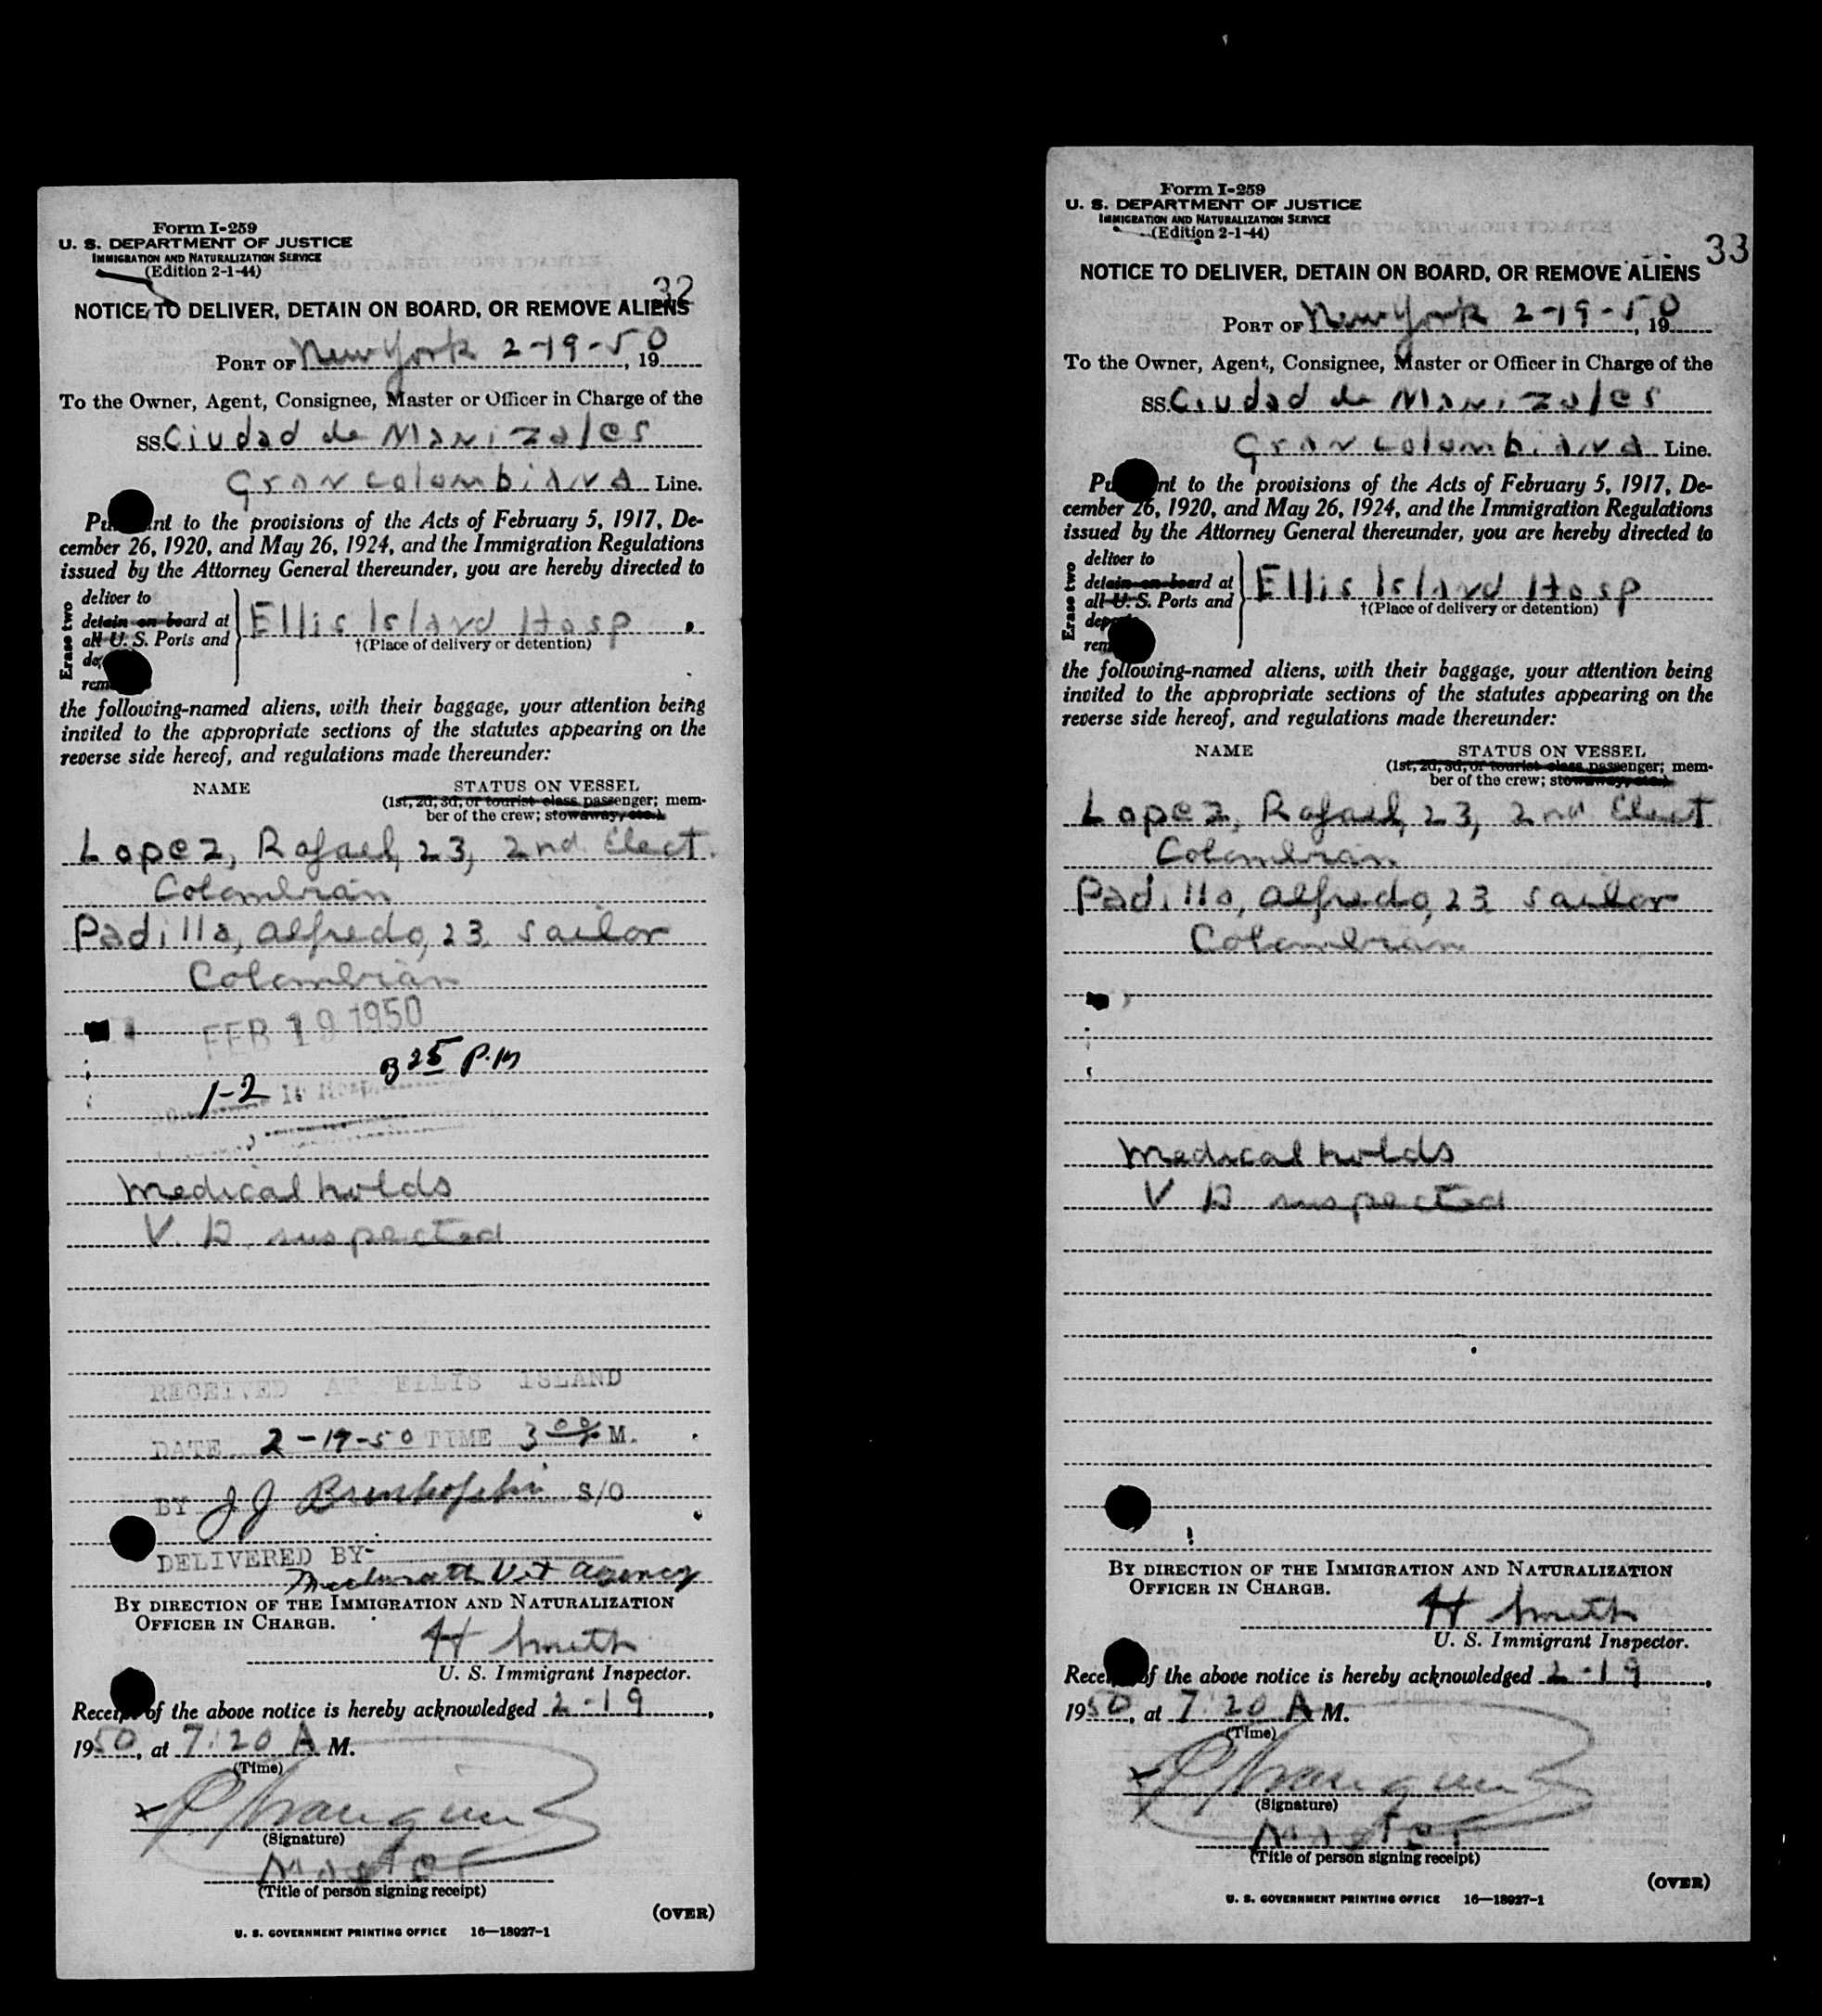 Form I-259
U. S. DEPARTMENT OF JUSTICE
IMMIGRATION AND NATURALIZATION SERVICE
(Edition 2-1-44)
32
NOTICE TO DELIVER, DETAIN ON BOARD, OR REMOVE ALIENS
PORT OF New York 2-19-50, 19
To the Owner, Agent, Consignee, Master or Officer in Charge of the
SS. Ciudad de Manizales
Grancolombiana Line.
Pu nt to the provisions of the Acts of February 5, 1917, De-
cember 26, 1920, and May 26, 1924, and the Immigration Regulations
issued by the Attorney General thereunder, you are hereby directed to
Erase two
deliver to
detain on board at
all U. S. Ports and
de
rem
Ellis Island Hosp
†(Place of delivery or detention)
the following-named aliens, with their baggage, your attention being
invited to the appropriate sections of the statutes appearing on the
reverse side hereof, and regulations made thereunder:
NAME STATUS ON VESSEL
(1st, 2d, 3d, or tourist class passenger; mem-
ber of the crew; stowaway, etc.)
Lopez, Rafael, 23, 2nd Elect.
Colombian
Padilla, Alfredo, 23 Sailor
Colombian
FEB 19 1950
25 P.M
1-2
Medical holds
V. D. suspected
RECEIVED AT ELLIS ISLAND
DATE 2-19-50 TIME 3 00 M.
BY J J S/O
DELIVERED BY-
Agency
BY DIRECTION OF THE IMMIGRATION AND NATURALIZATION
OFFICER IN CHARGE.
H Smith
U. S. Immigrant Inspector.
Receipt of the above notice is hereby acknowledged 2-19,
1950, at 7:20 A M.
(Time)
(Signature)
Master
(Title of person signing receipt)
(OVER)
U. S. GOVERNMENT PRINTING OFFICE 16—18927-1
Form I-259
U. S. DEPARTMENT OF JUSTICE
IMMIGRATION AND NATURALIZATION SERVICE
(Edition 2-1-44)
33
NOTICE TO DELIVER, DETAIN ON BOARD, OR REMOVE ALIENS
PORT OF New York 2-19-50, 19
To the Owner, Agent, Consignee, Master or Officer in Charge of the
SS. Ciudad de Manizales
Grancolombiana Line.
Pu nt to the provisions of the Acts of February 5, 1917, De-
cember 26, 1920, and May 26, 1924, and the Immigration Regulations
issued by the Attorney General thereunder, you are hereby directed to
Erase two
deliver to
detain on board at
all U. S. Ports and
depo
rem
Ellis Island Hosp
†(Place of delivery or detention)
the following-named aliens, with their baggage, your attention being
invited to the appropriate sections of the statutes appearing on the
reverse side hereof, and regulations made thereunder:
NAME STATUS ON VESSEL
(1st, 2d, 3d, or tourist class passenger; mem-
ber of the crew; stowaway, etc.)
Lopez, Rafael, 23, 2nd Elect
Colombian
Padilla, Alfredo, 23 Sailor
Colombian
Medical holds
V D suspected
BY DIRECTION OF THE IMMIGRATION AND NATURALIZATION
OFFICER IN CHARGE.
H Smith
U. S. Immigrant Inspector.
Rece of the above notice is hereby acknowledged 2-19,
1950, at 7:20 A M.
(Time)
(Signature)
Master
(Title of person signing receipt)
(OVER)
U. S. GOVERNMENT PRINTING OFFICE 16—18927-1